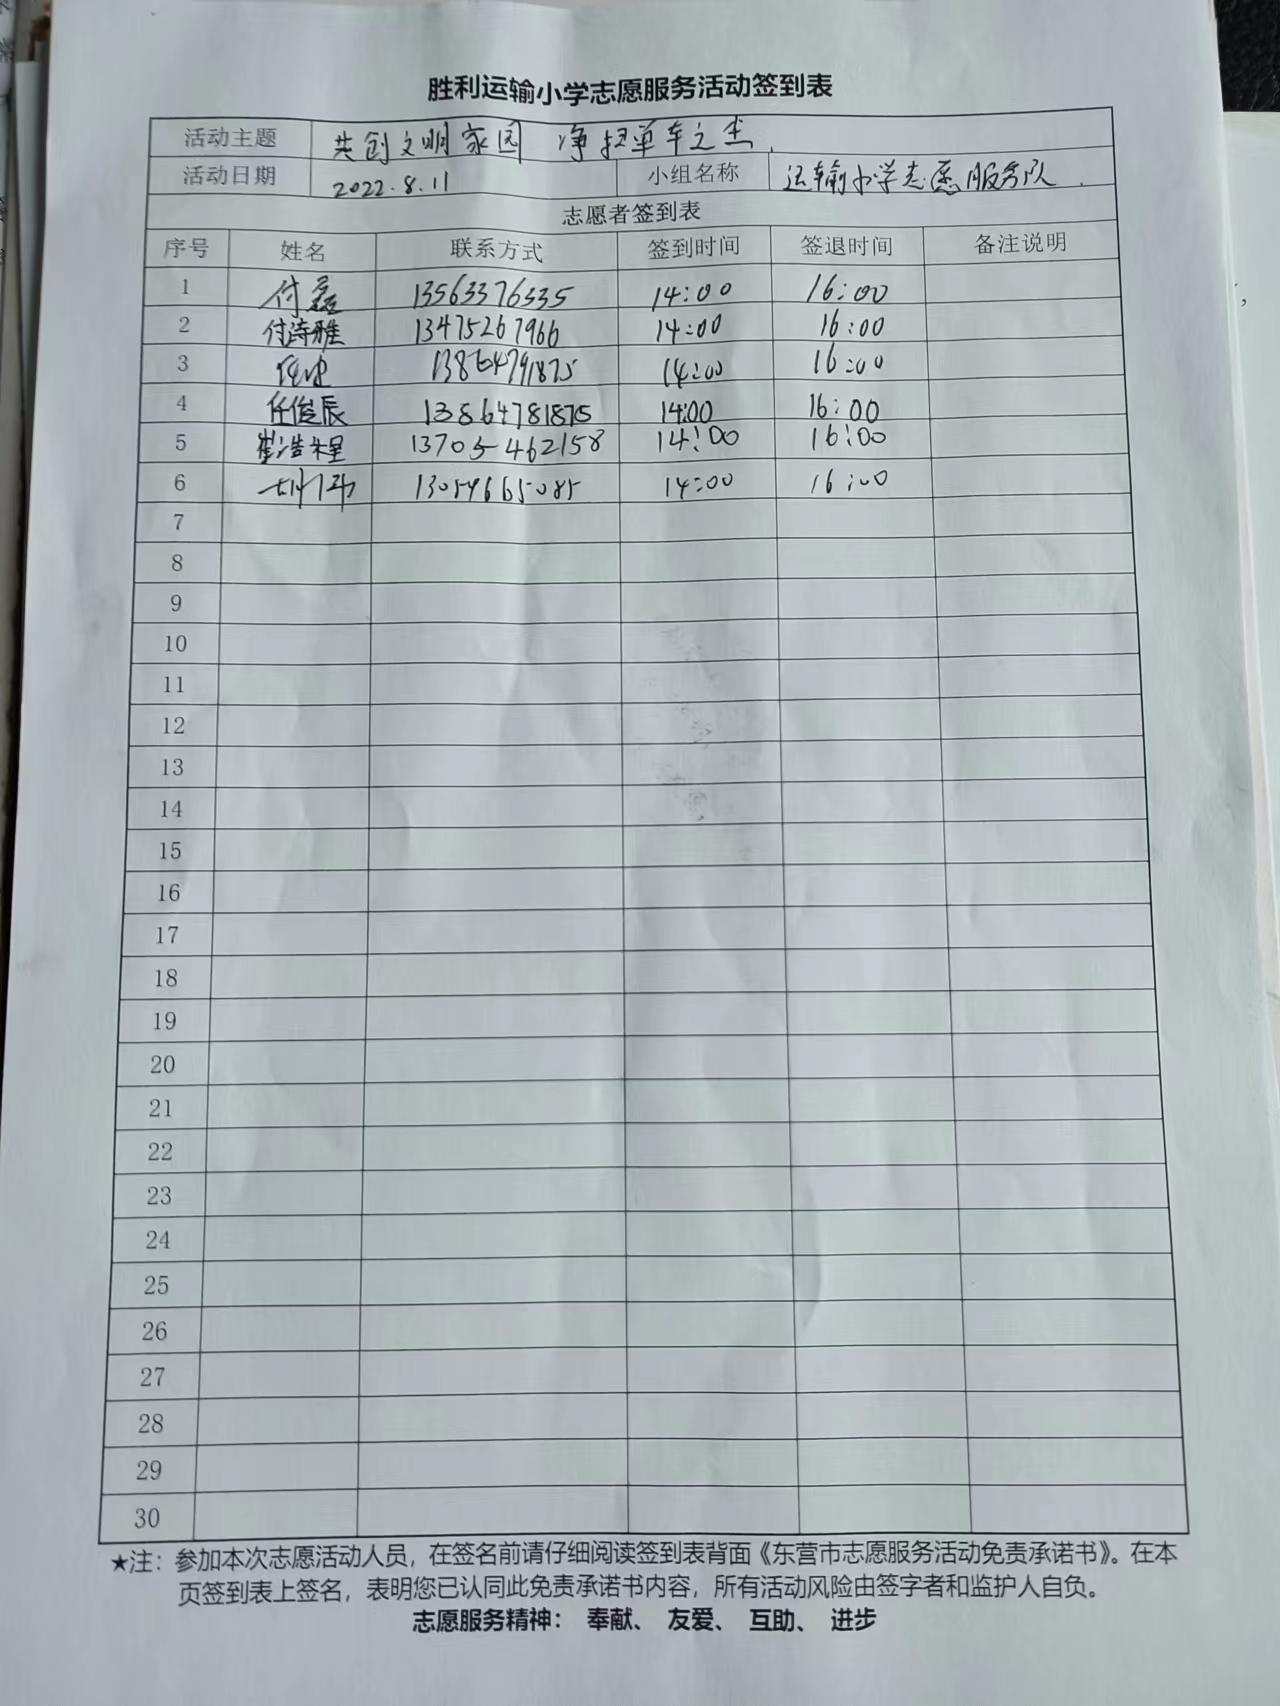 胜利运输小学志愿服务活动签到表
活动主题 共创文明家园 净扫单车之尘
活动日期 2022.8.11 小组名称 运输小学志愿服务队
志愿者签到表
序号 姓名 联系方式 签到时间 签退时间 备注说明
1 付磊 13563376535 14:00 16:00
2 付诗雅 13475267966 14:00 16:00
3 13864791875 14:00 16:00
4 任俊辰 13864781875 14:00 16:00
5 崔浩 13705462158 14:00 16:00
6 13054665085 14:00 16:00
7
8
9
10
11
12
13
14
15
16
17
18
19
20
21
22
23
24
25
26
27
28
29
30
★注：参加本次志愿活动人员，在签名前请仔细阅读签到表背面《东营市志愿服务活动免责承诺书》。在本
页签到表上签名，表明您已认同此免责承诺书内容，所有活动风险由签字者和监护人自负。
志愿服务精神： 奉献、 友爱、 互助、 进步